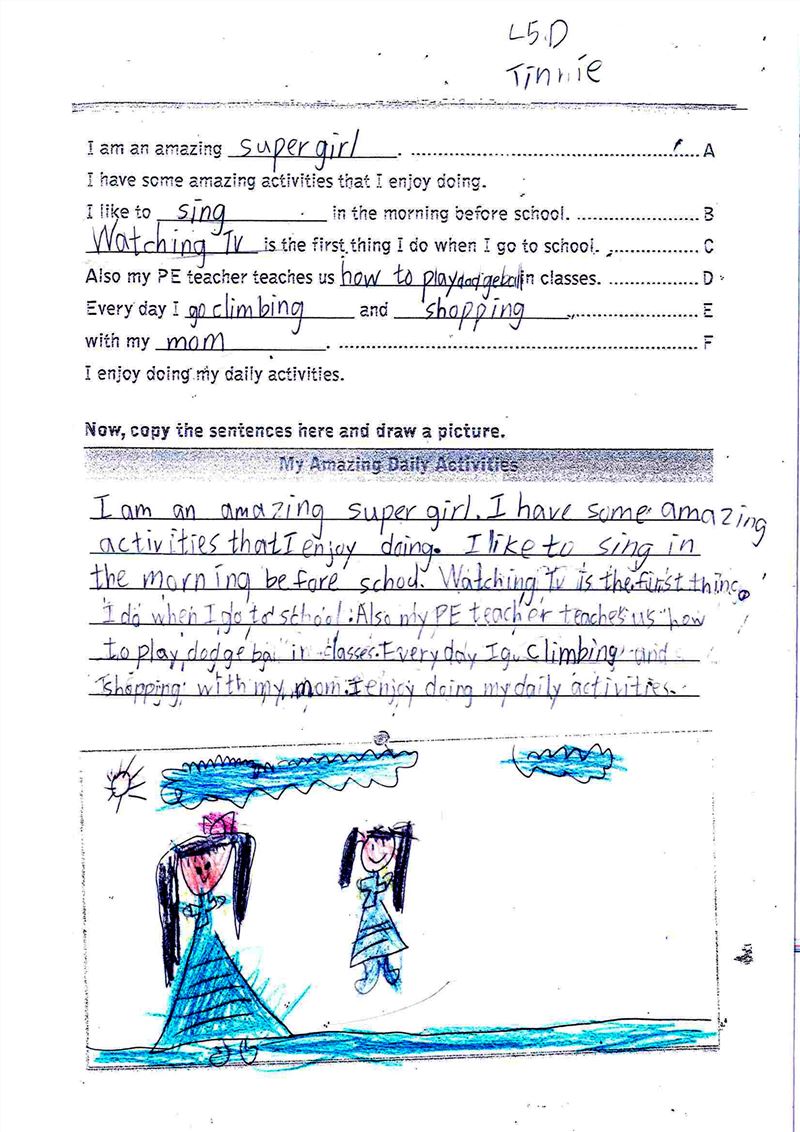 L5.D
Tinnie
I am an amazing super girl. A
I have some amazing activities that I enjoy doing.
I like to sing in the morning before school. B
Watching Tv is the first thing I do when I go to school. C
Also my PE teacher teaches us how to play dodgeball in classes. D
Every day I go climbing and shopping E
with my mom. F
I enjoy doing my daily activities.
Now, copy the sentences here and draw a picture.
My Amazing Daily Activities
I am an amazing super girl. I have some amazing
activities that I enjoy doing. I like to sing in
the morning before school. Watching Tv is the first thing
I do when I go to school. Also my PE teacher teaches us how
to play dodge ball in classes. Every day I go climbing and
shopping with my mom. I enjoy doing my daily activities.